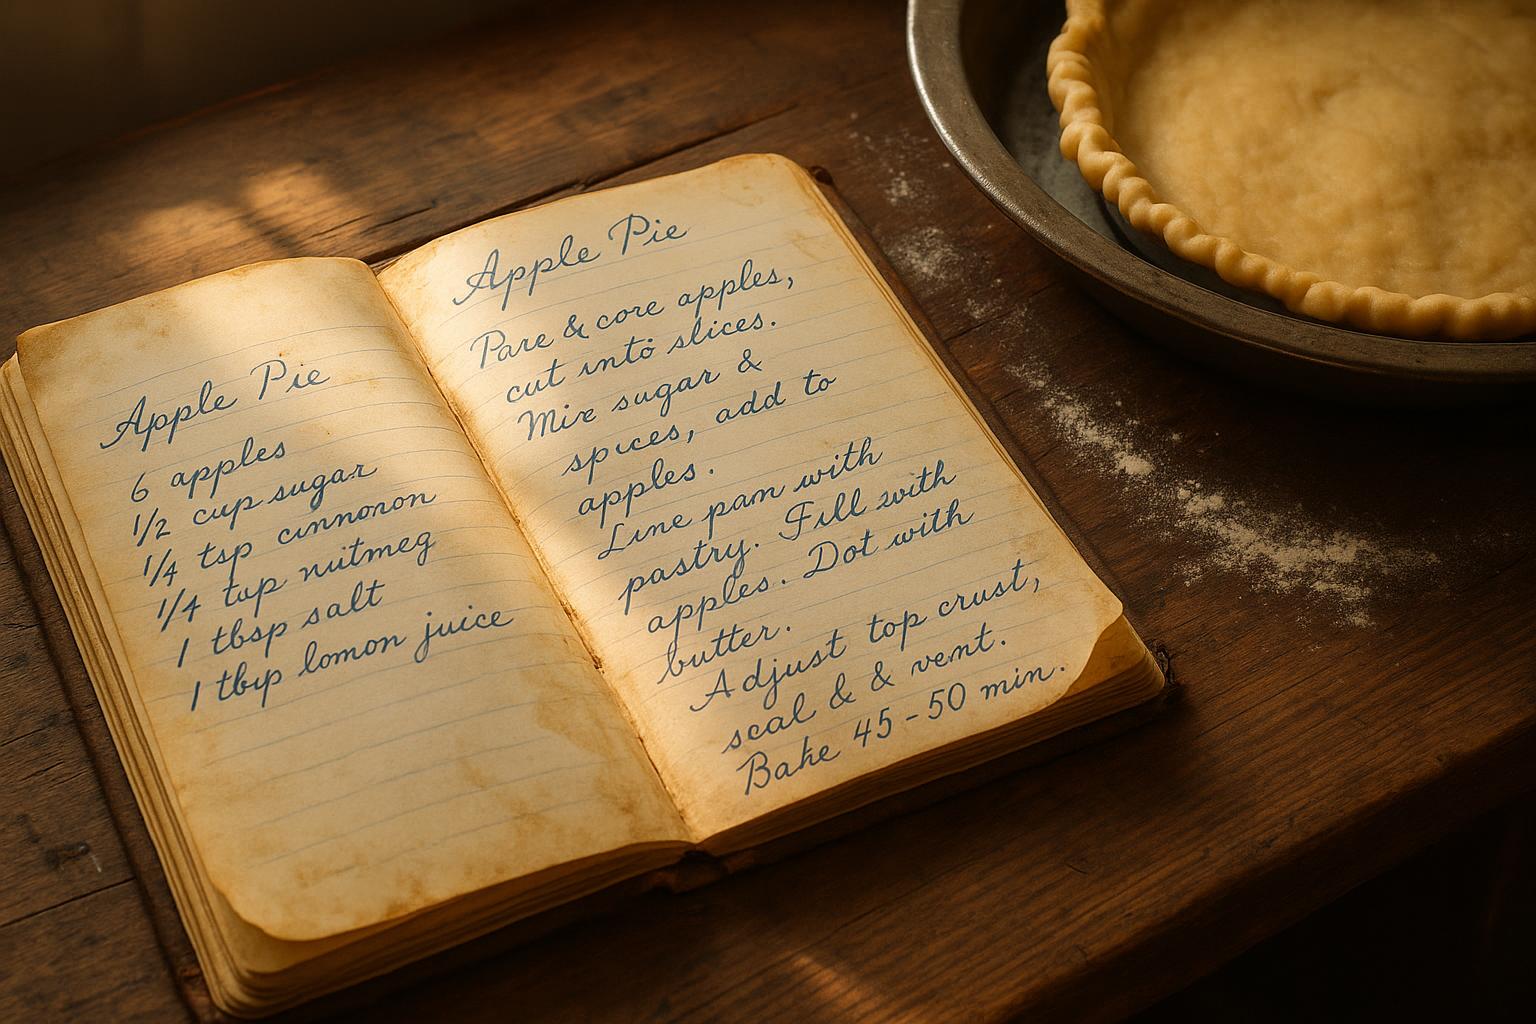 Apple Pie
6 apples
1/2 cup sugar
1/4 tsp cinnoron
1/4 tup nutmeg
1 tbsp salt
1 tbıp lomon juice
Apple Pie
Pare & core apples,
cut into slices.
Mix sugar &
spices, add to
apples.
Line pam with
pastry. Fill with
apples. Dot with
butter.
Adjust top crust,
scal & & vent.
Bahe 45-50 min.